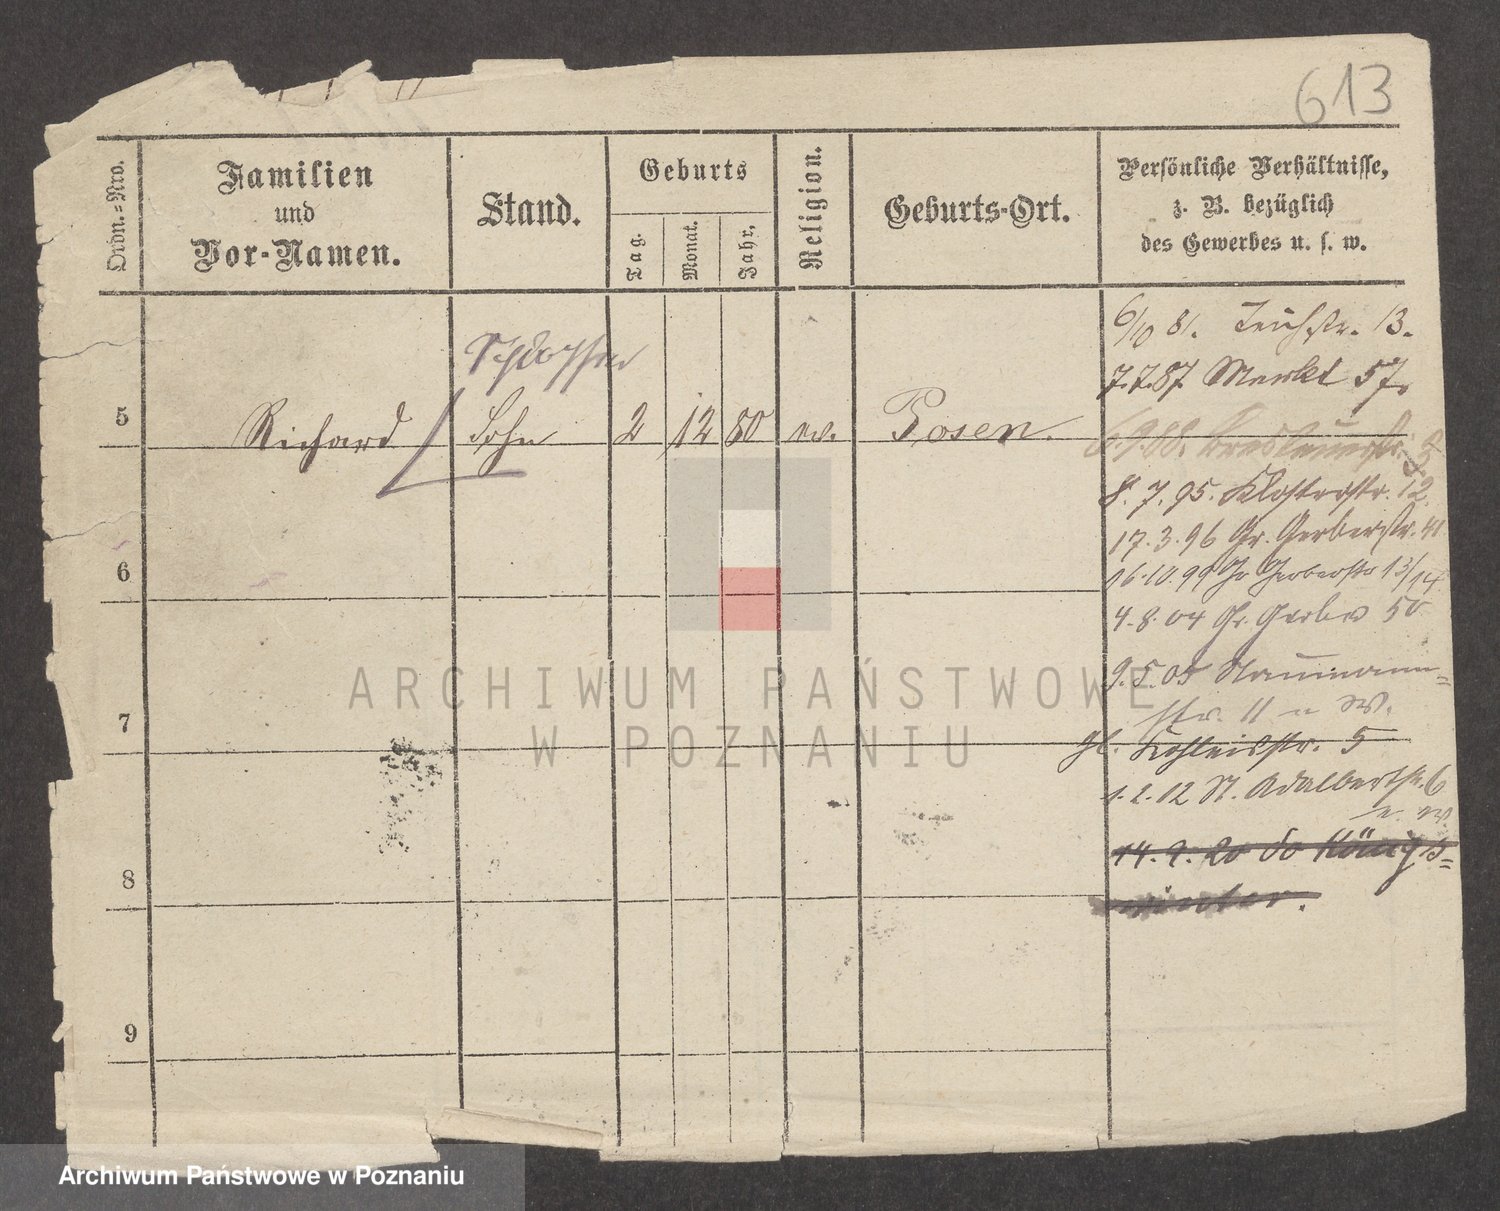 613
Ordn.-Nro.
Familien
und
Vor-Namen.
Stand.
Geburts
Tag.
Monat.
Jahr.
Religion.
Geburts-Ort.
Persönliche Verhältnisse,
z. B. bezüglich
des Gewerbes u. s. w.
5
Richard
Sohn
2
12
80
ev.
Posen.
6/10 81. Teichstr. 13.
7.7.87 Markt 57.
6 9.88. Breslauerstr. 5
8. 7. 95. Klosterstr. 12.
17. 3. 96 Gr. Gerberstr. 41
16.10.99 Gr Gerberstr 13/14
4. 8. 04 Gr. Gerber 50
9. 5. 05 Naumann=
str. 11
5
1. 2. 12 St. Adalbertstr. 6
14. 9. 20 do Königs=
winter.
6
7
8
9
ARCHIWUM PAŃSTWOWE
W POZNANIU
Archiwum Państwowe w Poznaniu